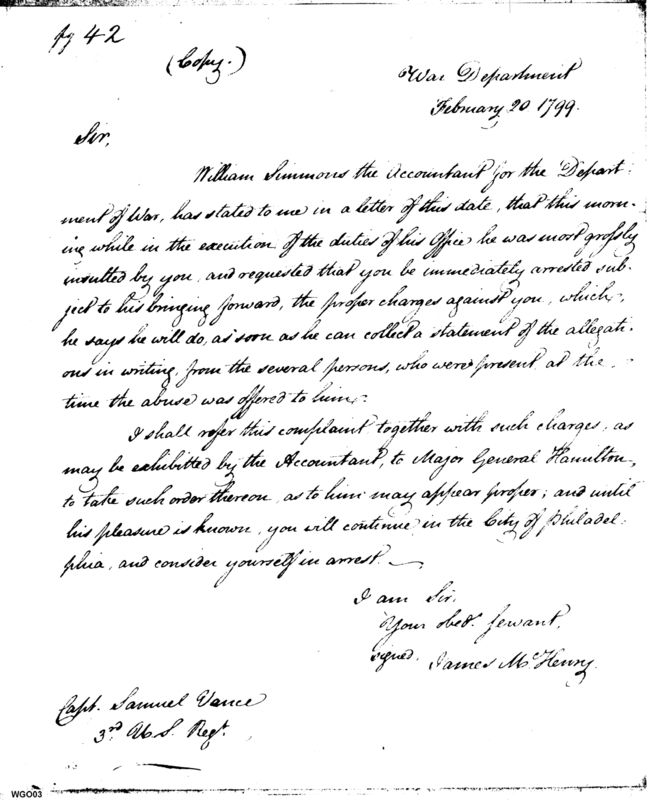 pg 42
(Copy.)
War Department
February 20 1799.
Sir,
William Simmons the Accountant for the Depart-
ment of War, has stated to me in a letter of this date, that this morn-
ing while in the execution of the duties of his Office he was most grossly
insulted by you, and requested that you be immediately arrested sub-
ject to his bringing forward, the proper charges against you, which,
he says he will do, as soon as he can collect a statement of the allegati-
ons in writing, from the several persons, who were present at the
time the abuse was offered to him.
I shall refer this complaint together with such charges, as
may be exhibitted by the Accountant, to Major General Hamilton,
to take such order thereon, as to him may appear proper; and until
his pleasure is known, you will continue in the City of Philadel-
phia, and consider yourself in arrest.
I am Sir,
Your obed. servant,
signed. James McHenry.
Capt. Samuel Vance
3rd U S. Regt.
WGO03